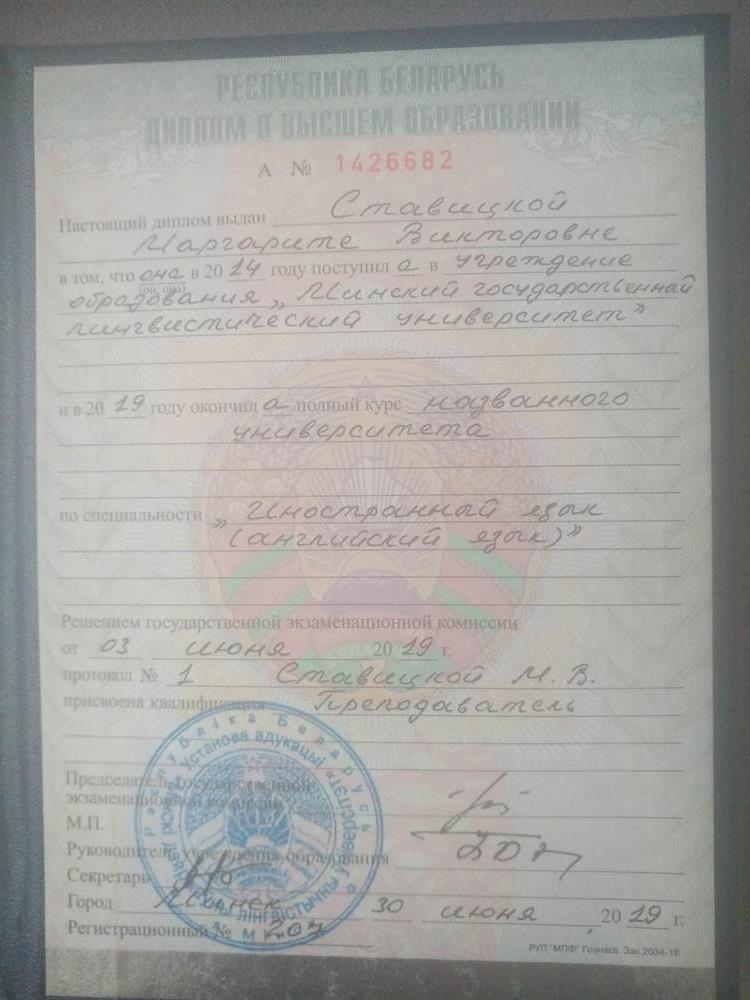 РЕСПУБЛИКА БЕЛАРУСЬ
ДИПЛОМ О ВЫСШЕМ ОБРАЗОВАНИИ
А № 1426682
Настоящий диплом выдан Ставицкой
Маргарите Викторовне
в том, что она в 2014 году поступил а в учреждение
[он, она]
образования „Минский государственный
лингвистический университет"
и в 2019 году окончил а полный курс названного
университета
по специальности „Иностранный язык
(английский язык)"
Решением государственной экзаменационной комиссии
от 03 июня 2019 г.
протокол № 1 Ставицкой М. В.
присвоена квалификация Преподаватель
Председатель государственной
экзаменационной комиссии
М.П.
Руководитель учреждения образования
Секретарь
Город Минск 30 июня, 2019 г.
Регистрационный № 203
РУП "МПФ" Гознака. Зак. 2034-18
Рэспубліка Беларусь
Установа адукацыі
лінгвістычны ўніверсітэт"